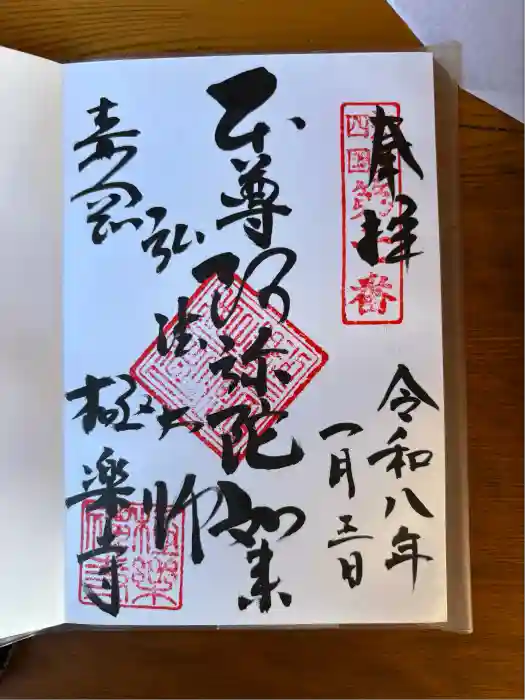 奉拝
四国第二番
令和八年
一月三日
本尊阿弥陀如来
弘法大師
極楽寺